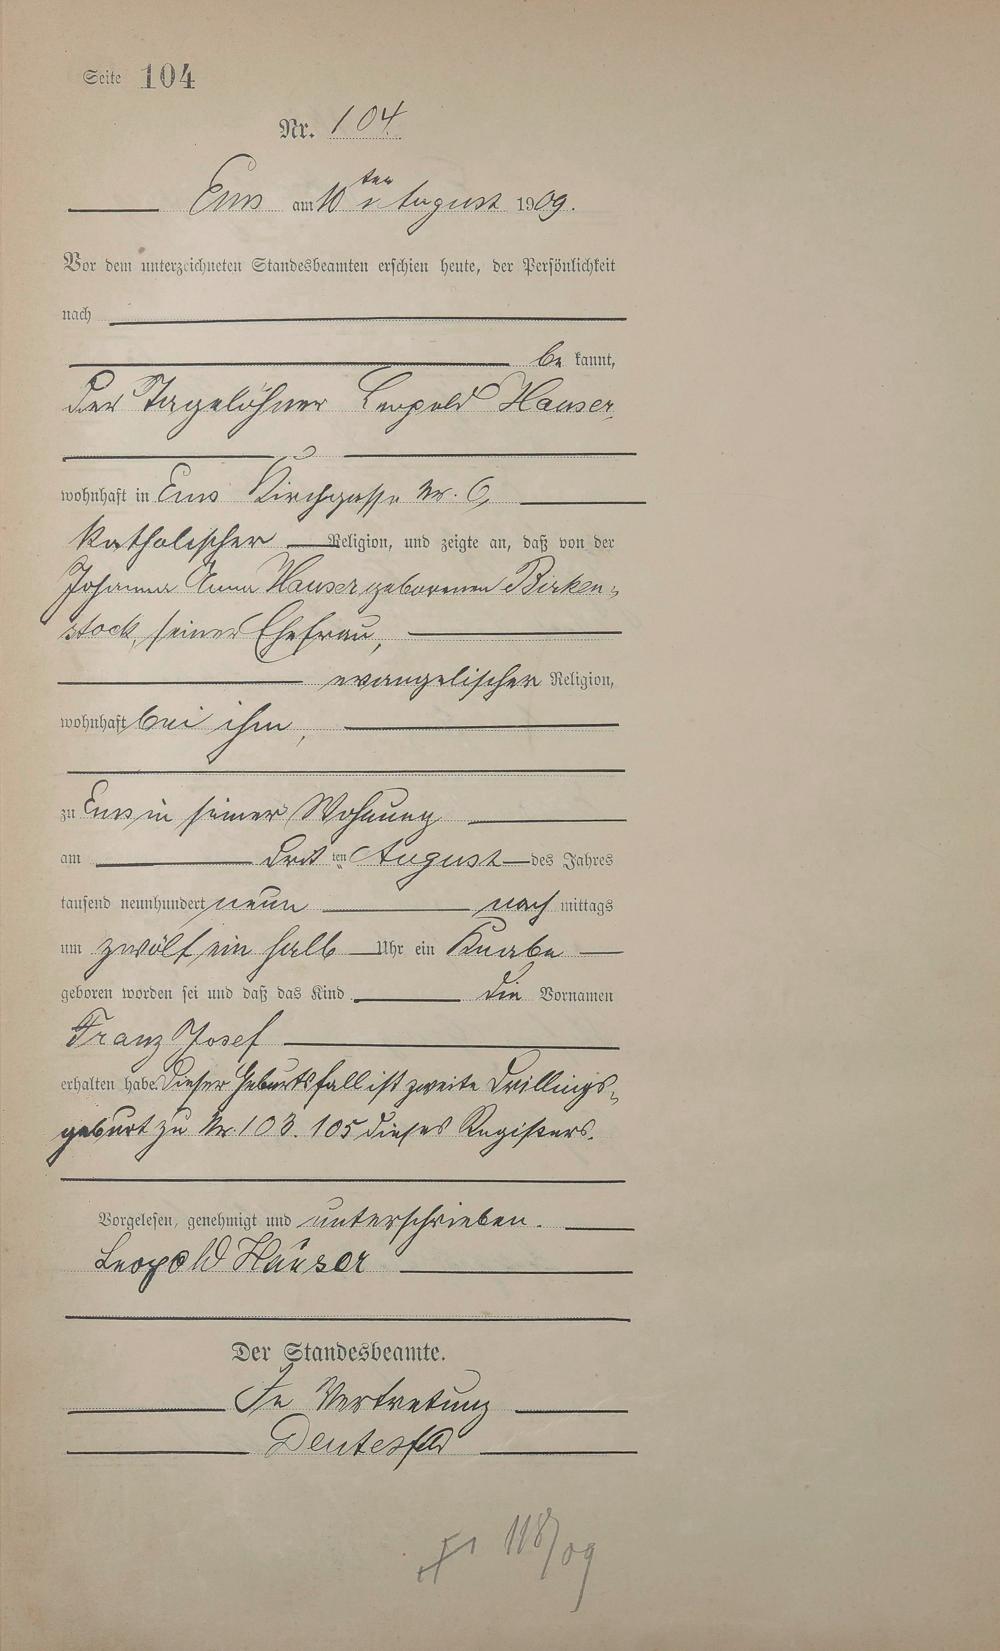 Seite 104
Nr. 104
Ems am 10 ten August 1909.
Vor dem unterzeichneten Standesbeamten erschien heute, der Persönlichkeit
nach
be kannt,
der Tagelöhner Leopold Hauser,
wohnhaft in Ems Kirchgasse Nr. 6,
katholischer Religion, und zeigte an, daß von der
Johanna Anna Hauser geborenen Birken-
stock, seiner Ehefrau,
evangelischer Religion,
wohnhaft bei ihm,
zu Ems in seiner Wohnung
am drit ten August des Jahres
tausend neunhundert neun nach mittags
um zwölf ein halb Uhr ein Knabe
geboren worden sei und daß das Kind die Vornamen
Franz Josef
erhalten habe. Dieser Geburtsfall ist zweite Drillings-
geburt zu Nr. 103. 105 dieses Registers.
Vorgelesen, genehmigt und unterschrieben.
Leopold Hauser
Der Standesbeamte.
In Vertretung
118/09